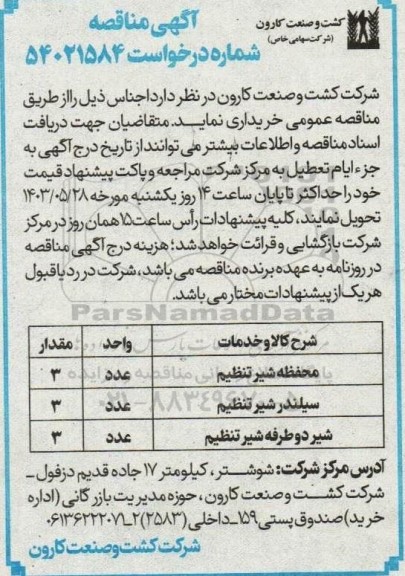 کشت و صنعت کارون
(شرکت سهامی خاص)
آگهی مناقصه
شماره درخواست ۵۴۰۲۱۵۸۴
شرکت کشت و صنعت کارون در نظر دارد اجناس ذیل را از طریق
مناقصه عمومی خریداری نماید. متقاضیان جهت دریافت
اسناد مناقصه و اطلاعات بیشتر می توانند از تاریخ درج آگهی به
جزء ایام تعطیل به مرکز شرکت مراجعه و پاکت پیشنهاد قیمت
خود را حداکثر تا پایان ساعت ۱۴ روز یکشنبه مورخه ۱۴۰۳/۰۵/۲۸
تحویل نمایند، کلیه پیشنهادات رأس ساعت ۱۵ همان روز در مرکز
شرکت بازگشایی و قرائت خواهد شد؛ هزینه درج آگهی مناقصه
در روزنامه به عهده برنده مناقصه می باشد، شرکت در رد یا قبول
هر یک از پیشنهادات مختار می باشد.
ParsNamadData
شرح کالا و خدمات واحد مقدار
محفظه شیر تنظیم عدد ۳
سیلندر شیر تنظیم عدد ۳
شیر دو طرفه شیر تنظیم عدد ۳
آدرس مرکز شرکت: شوشتر، کیلومتر ۱۷ جاده قدیم دزفول ـ
شرکت کشت و صنعت کارون، حوزه مدیریت بازرگانی (اداره
خرید) صندوق پستی ۱۵۹ـ داخلی (۲۵۸۳) ۲ـ۰۶۱۳۶۲۲۲۰۷۱
شرکت کشت و صنعت کارون